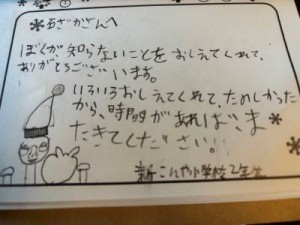 石ざかさんへ
ぼくが知らないことをおしえてくれて、
ありがとうございます。
いろいろおしえてくれて、ためしかった
から、時間があれば、ま
たきてください!
小学校2年生